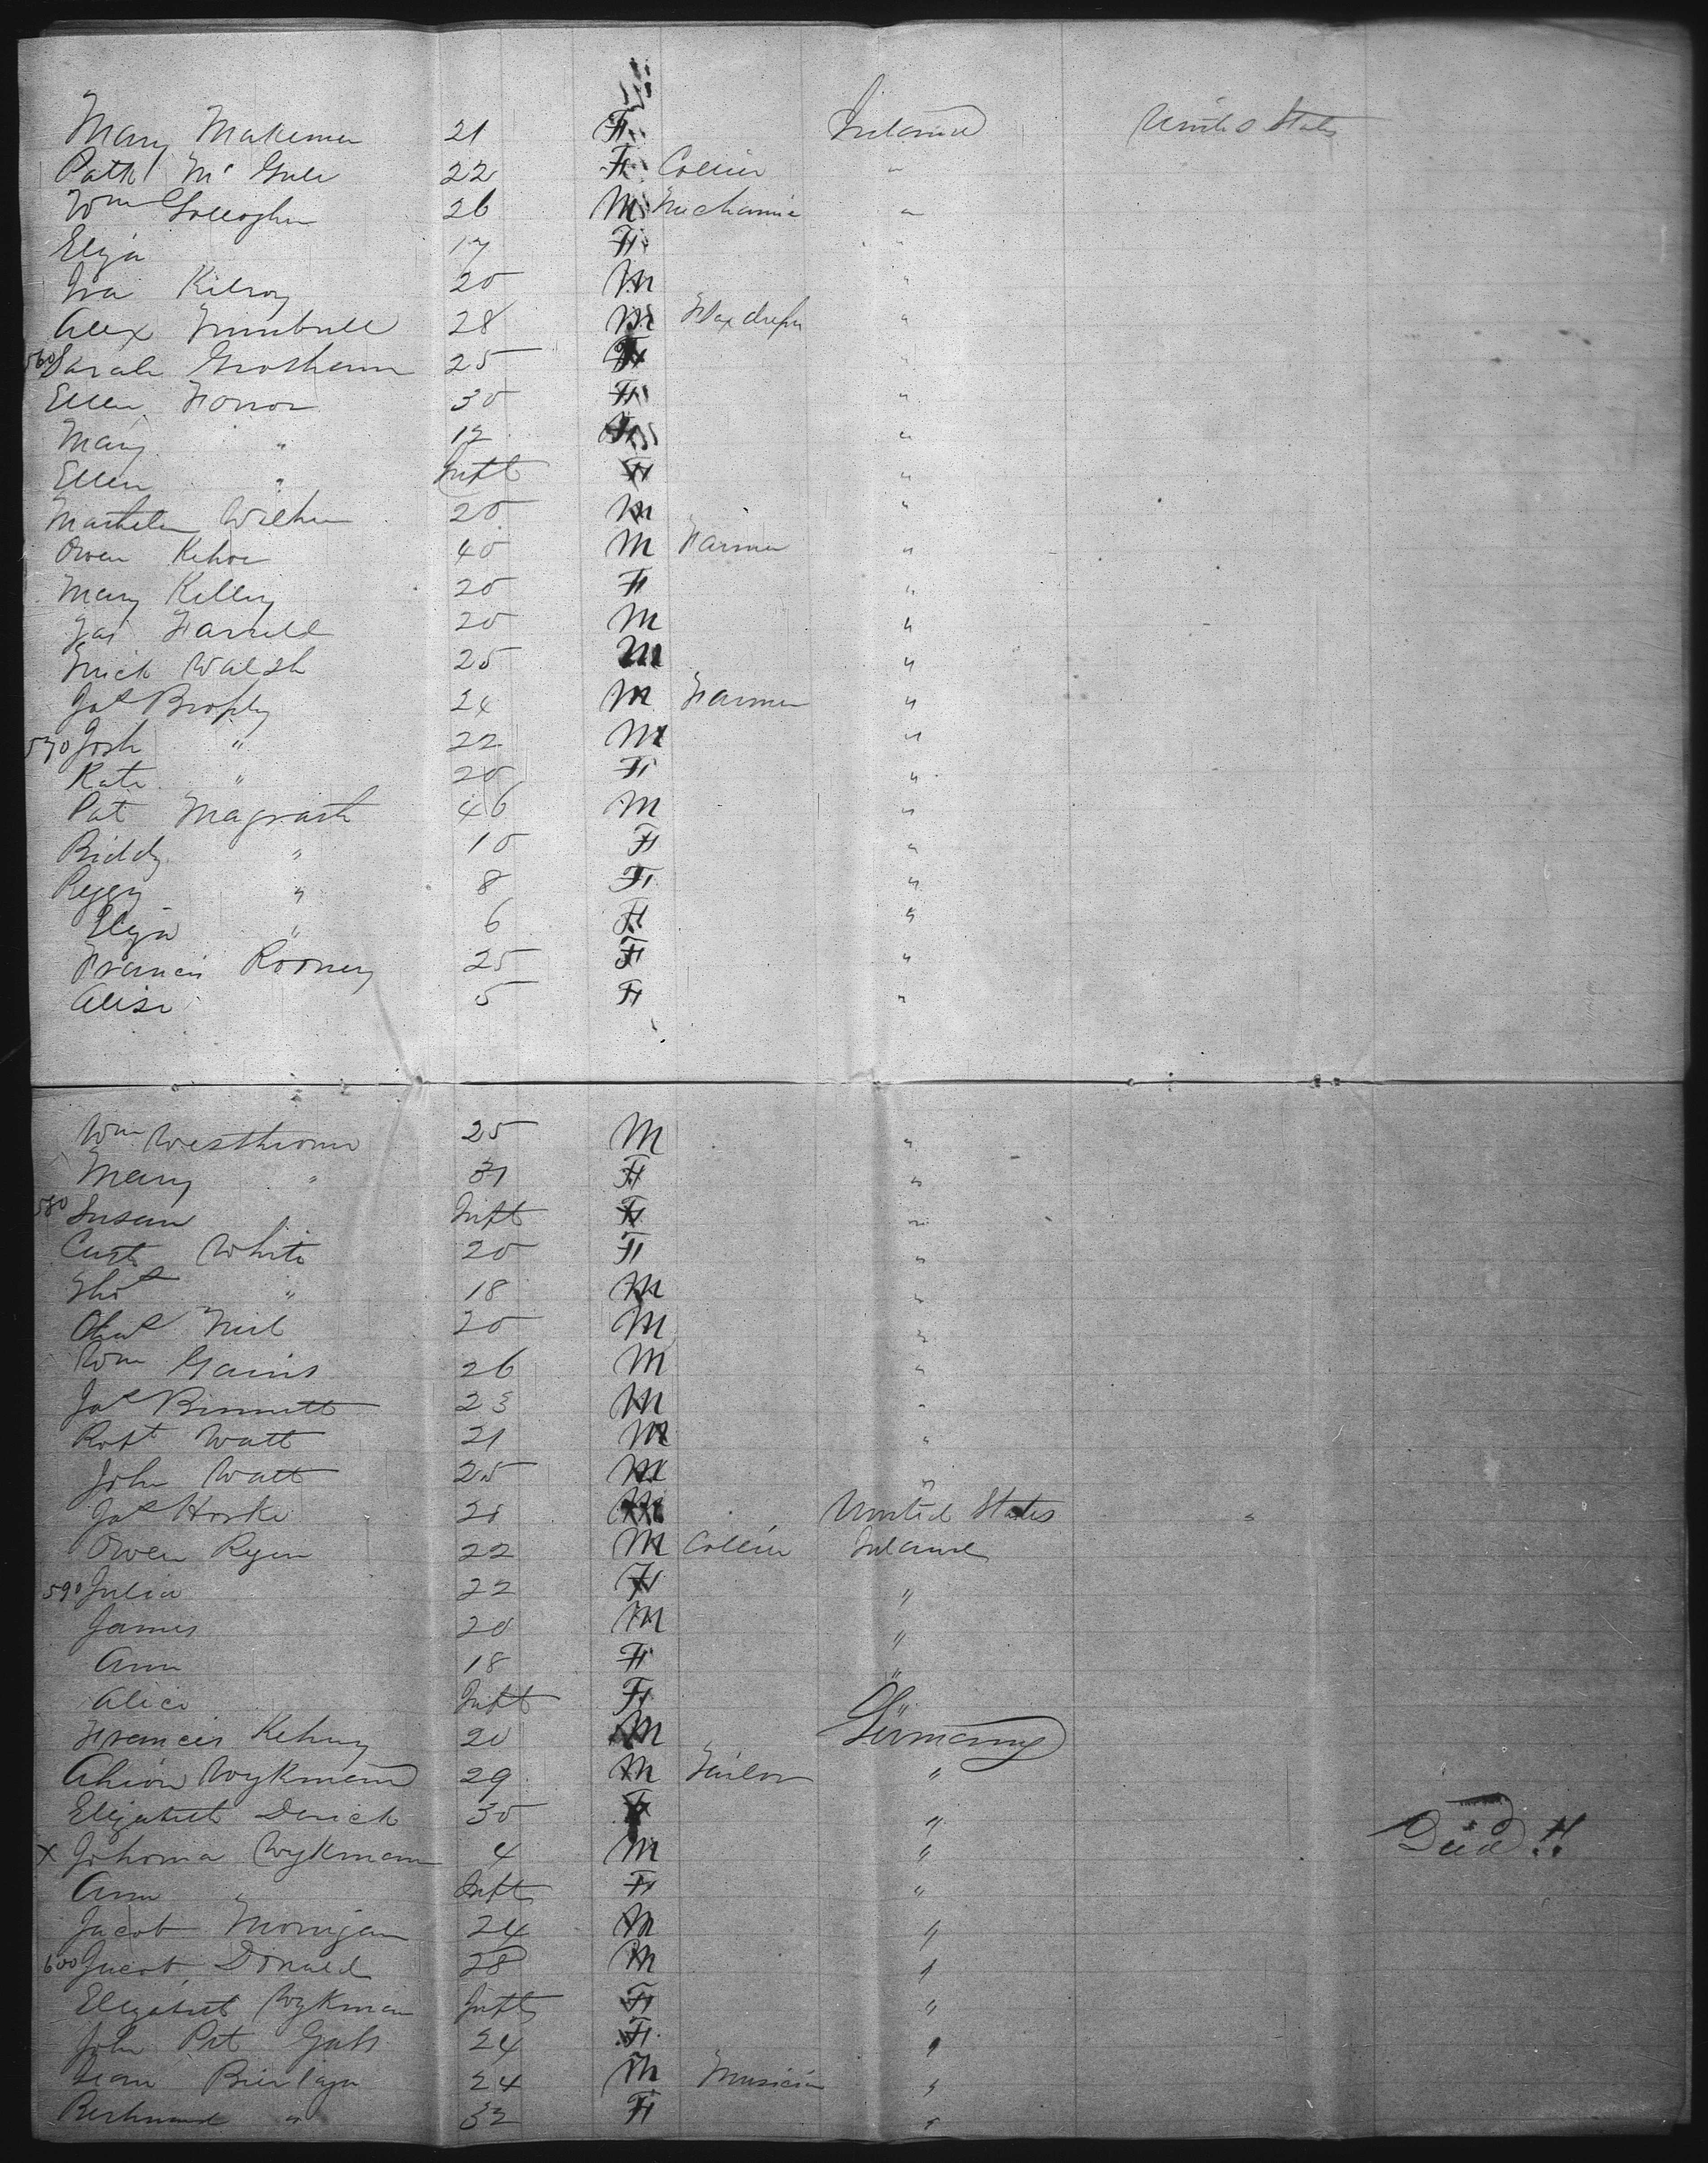 Mary Makemee 21 F Ireland United States
Patk Mc Gill 22 F Collier "
Wm Gollogher 26 M Mechanic "
Eliza 17 F "
Ira Kilroy 20 M "
Alex Turnbull 28 M Flax dresser "
560 Sarah 25 F "
Ellen Honor 30 F "
Mary " 12 F "
Ellen " Inft F "
20 M "
Owen Kehoe 40 M Farmer "
Mary Kelly 20 F "
Jas Farrell 20 M "
Walsh 25 M "
Jas Brophy 24 M Farmer "
570 Josh " 22 M "
Kate " 20 F "
Pat Magrath 46 M "
Biddy " 10 F "
Peggy " 8 F "
Eliza " 6 F "
Francis Rooney 25 F "
Alise 5 F "
Wm Westhrom 25 M "
Mary " 31 F "
580 Susan Inft F "
White 20 F "
Thos " 18 M "
Chas Neil 20 M "
Wm Gains 26 M "
Jas Binnett 23 M "
Robt Watt 21 M "
John Watt 25 M "
Jas Horke 21 M United States "
Owen Ryan 22 M Collier Ireland
590 Julia 22 F "
James 20 M "
Ann 18 F "
Alice Inft F "
Francis Kehny 20 M Germany
Wykmann 29 M Tailor "
Elizabet Derick 30 F "
X Johoma Wykmann 4 M " Died !!
Ann " Inft F "
Jacob Morrigan 24 M "
600 Jacob Donald 28 M "
Elizabet Wykman Inft F "
John 24 F "
24 M Musician "
" 32 F "